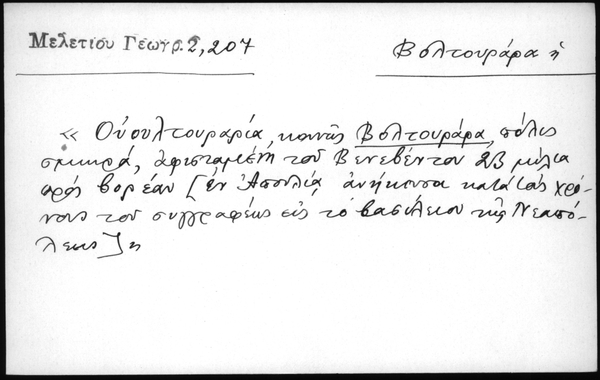 Μελετίου Γεωγρ. 2, 207
Βολτουράρα ἡ
« Οὐουλτουραρία, κοινῶς Βολτουράρα, πόλις
σμικρά, ἀφισταμένη τοῦ Βενεβέντου 23 μίλια
πρὸς βορέαν [ἐν Ἀπουλίᾳ ἀνήκουσα κατὰ τοὺς χρό-
νους τοῦ συγγραφέως εἰς τὸ βασίλειον τῆς Νεαπό-
λεως]»